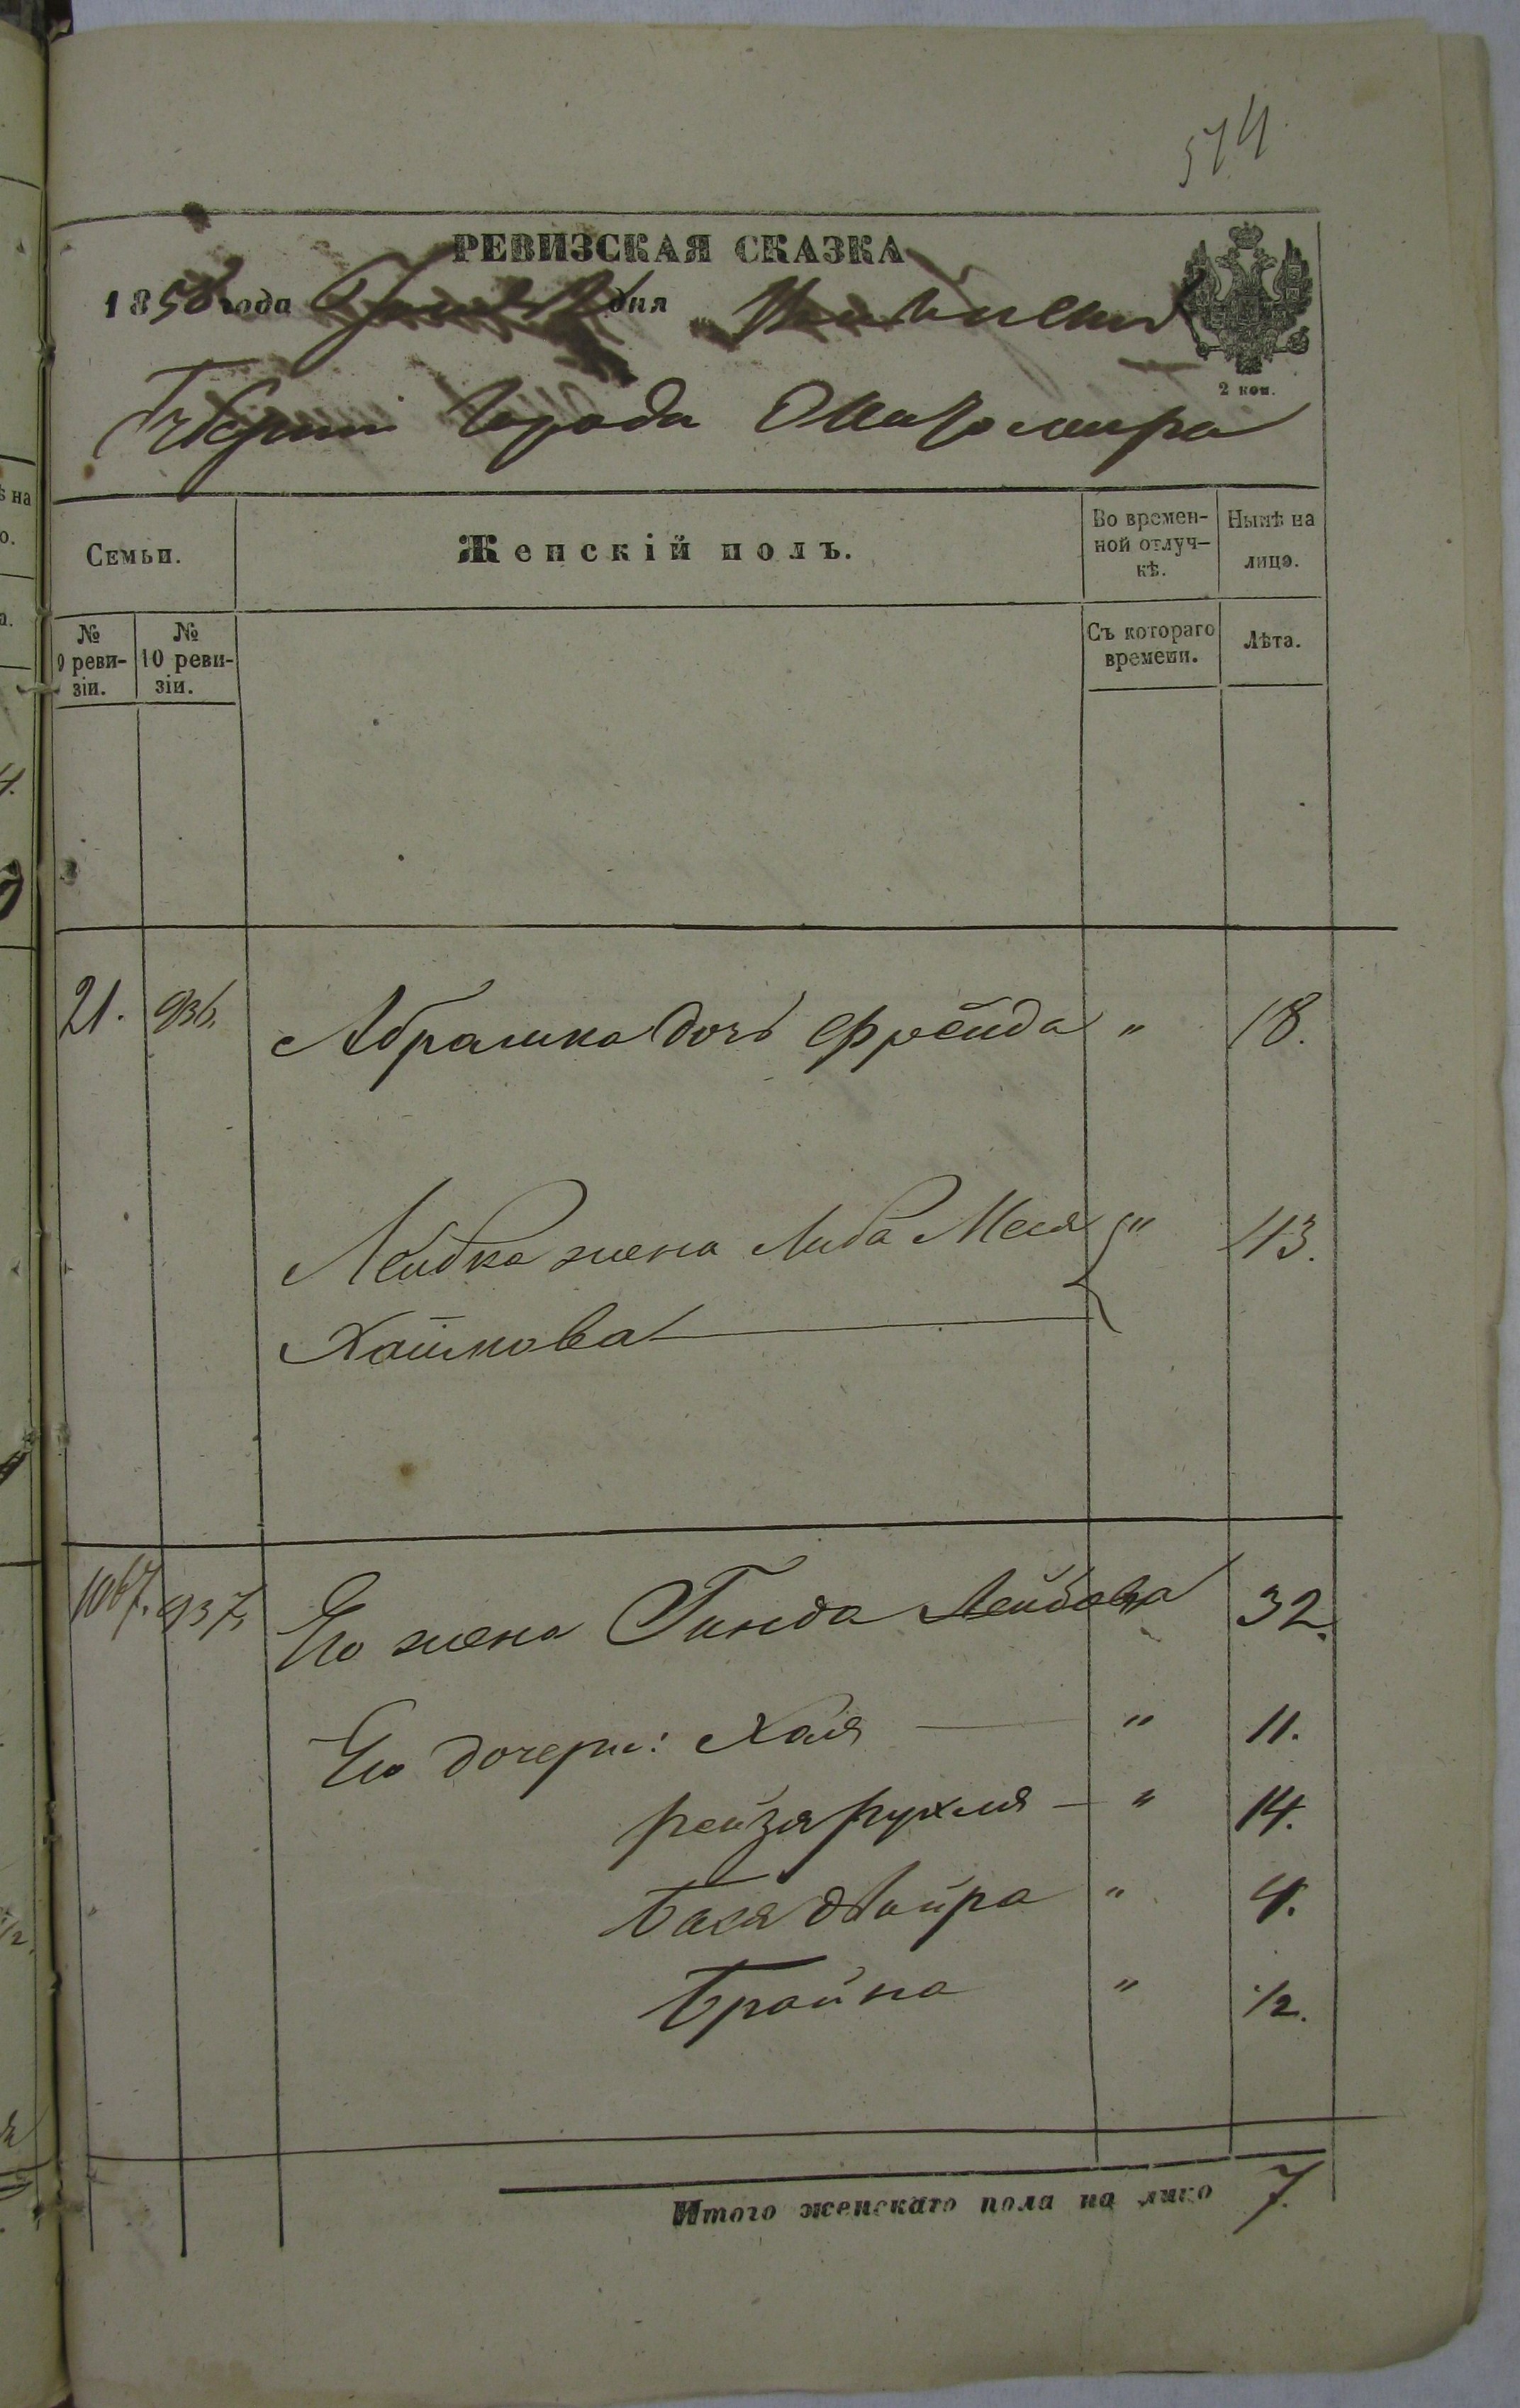 574
РЕВИЗСКАЯ СКАЗКА
1858 года дня
2 коп.
Губерніи города Житомира
Семьи. Женскій полъ. Во времен-ной отлуч-кѣ. Нынѣ на лицо.
№ 9 реви-зіи. № 10 реви-зіи. Съ котораго времени. Лѣта.
21. 936. Абрашка дочь Фрейда " 18.
Лейбка жена Либа Меся " 43.
Хаимова
1067. 937. Его жена Гинда Лейбова 32.
Его дочери: Хая " 11.
рейзя рухля " 14.
Бася двойра " 4.
Брайна " 1/2.
Итого женскаго пола на лицо 7.